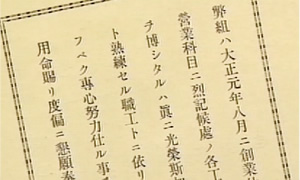 弊組ハ大正元年八月ニ創業
營業科目ニ烈記候處ノ各工
チ博シタルハ眞ニ光榮斯
ト熟練セル職工トニ依リ
フベク專心努力仕ル事
用命賜リ度偏ニ懇願奉